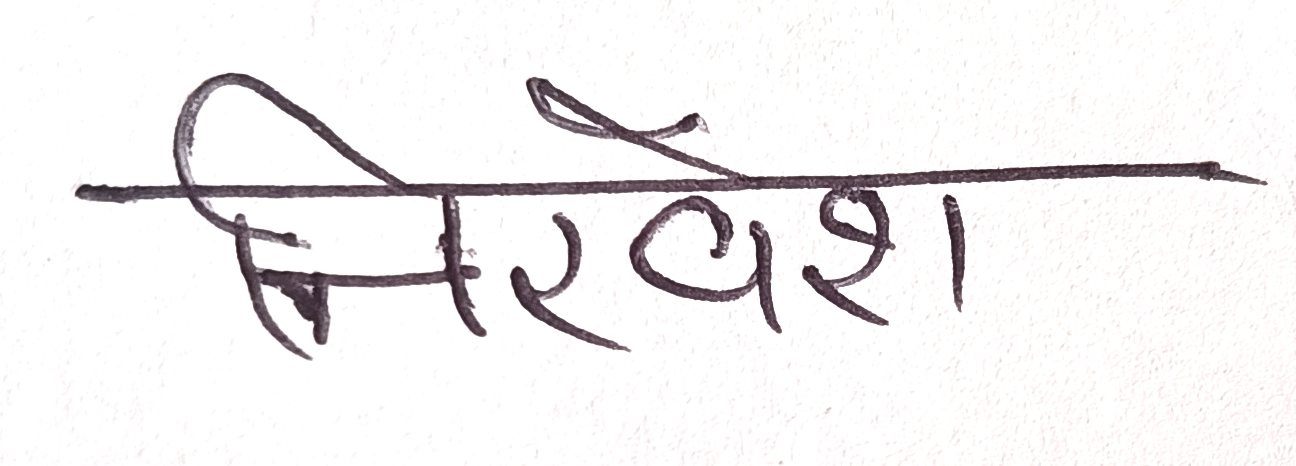 निरवेश